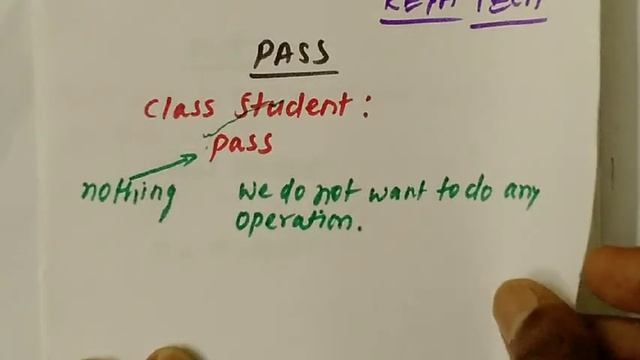 TECH
PASS
class Student:
pass
nothing we do not want to do any
operation.